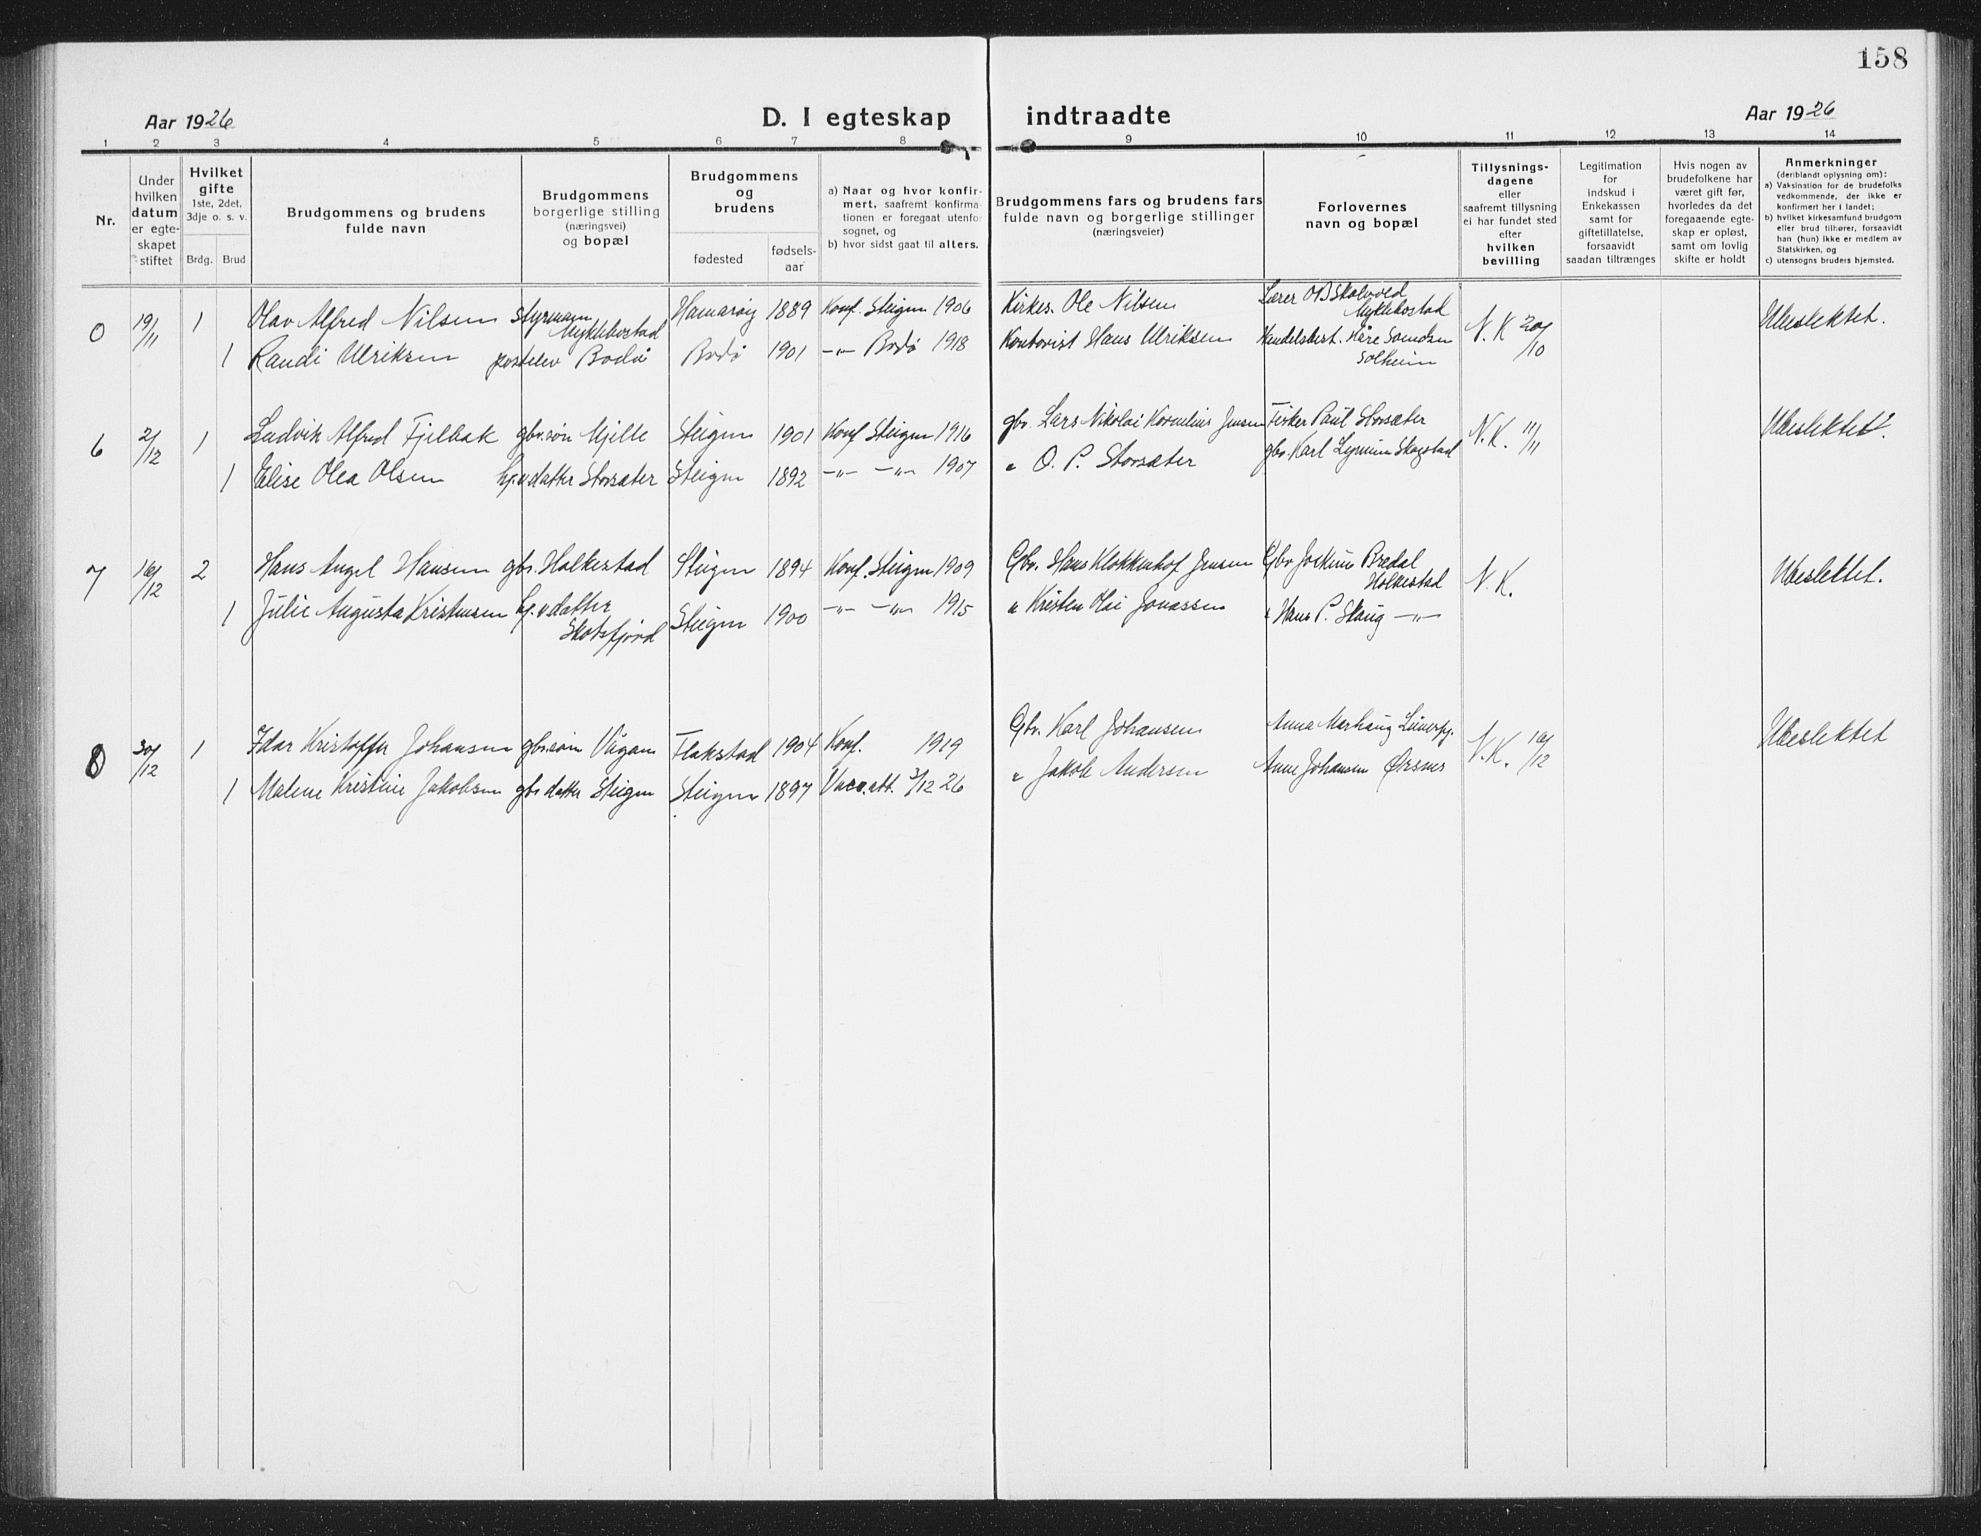 158
Aar 1926
D. I egteskap
indtraadte
Aar 1926
1 2 3 4 5 6 7 8 9 10 11 12 13 14
Nr.
Under
hvilken
datum
er egte-
skapet
stiftet
Hvilket
gifte
1ste, 2det,
3dje o. s. v.
Brdg. Brud
Brudgommens og brudens
fulde navn
Brudgommens
borgerlige stilling
(næringsvei)
og bopæl
Brudgommens
og
brudens
fødested
fødsels-
aar
a) Naar og hvor konfir-
mert, saafremt konfirma-
tionen er foregaat utenfor
sognet, og
b) hvor sidst gaat til alters.
Brudgommens fars og brudens fars
fulde navn og borgerlige stillinger
(næringsveier)
Forlovernes
navn og bopæl
Tillysnings-
dagene
eller
saafremt tillysning
ei har fundet sted
efter
hvilken
bevilling
Legitimation
for
indskud i
Enkekassen
samt for
giftetillatelse,
forsaavidt
saadan tiltrænges
Hvis nogen av
brudefolkene har
været gift før,
hvorledes da det
foregaaende egte-
skap er opløst,
samt om lovlig
skifte er holdt
Anmerkninger
(deriblandt oplysning om):
a) Vaksination for de brudefolks
vedkommende, der ikke er
konfirmert her i landet;
b) hvilket kirkesamfund brudgom
eller brud tilhører, forsaavidt
han (hun) ikke er medlem av
Statskirken, og
c) utensogns bruders hjemsted.
0 19/11 1 Olav Alfred Nilsen styrmann Myklebostad Hamarøy 1889 Konf. Steigen 1906 Kirkes. Ole Nilsen Lærer O B Skolvold Myklebostad N.K 20/10 Ubeslektet.
1 Randi Ulriksen postelev Bodø Bodø 1901 -"- Bodø 1918 Kontorist Hans Ulriksen Handelsbest. Kåre Solheim
6 2/12 1 Ludvik Alfred Fjelbak gbr.søn Mjelle Steigen 1901 Konf Steigen 1916 gbr. Lars Nikolai Kornelius Jensen Fisker Paul Storsæter N.K. 11/11 Ubeslektet.
1 Elise Olea Olsen hj.v datter Storsæter Steigen 1892 -"- -"- 1907 " O. P. Storsæter gbr. Karl Skogstad
7 16/12 2 Hans Angel Hansen gbr. Holkestad Steigen 1894 Konf. Steigen 1909 Gbr. Hans Klokkenhof Jensen Gbr Jockum Bredal Holkestad N.K. Ubeslektet.
1 Julie Augusta Kristensen hj.v datter Skotsfjord Steigen 1900 -"- -"- 1915 " Kristen Olai Jonassen " Hans P. Skaug -"-
8 30/12 1 Idar Kristoffer Johansen gbr.søn Vågan Flakstad 1904 Konf. 1919 Gbr. Karl Johansen Anna Marhaug N.K. 16/12 Ubeslektet
1 Malene Kristine Jakobsen gbr datter Steigen Steigen 1897 Vacc.att. 3/12 26 " Jakob Andersen Anne Johansen Ørsnes